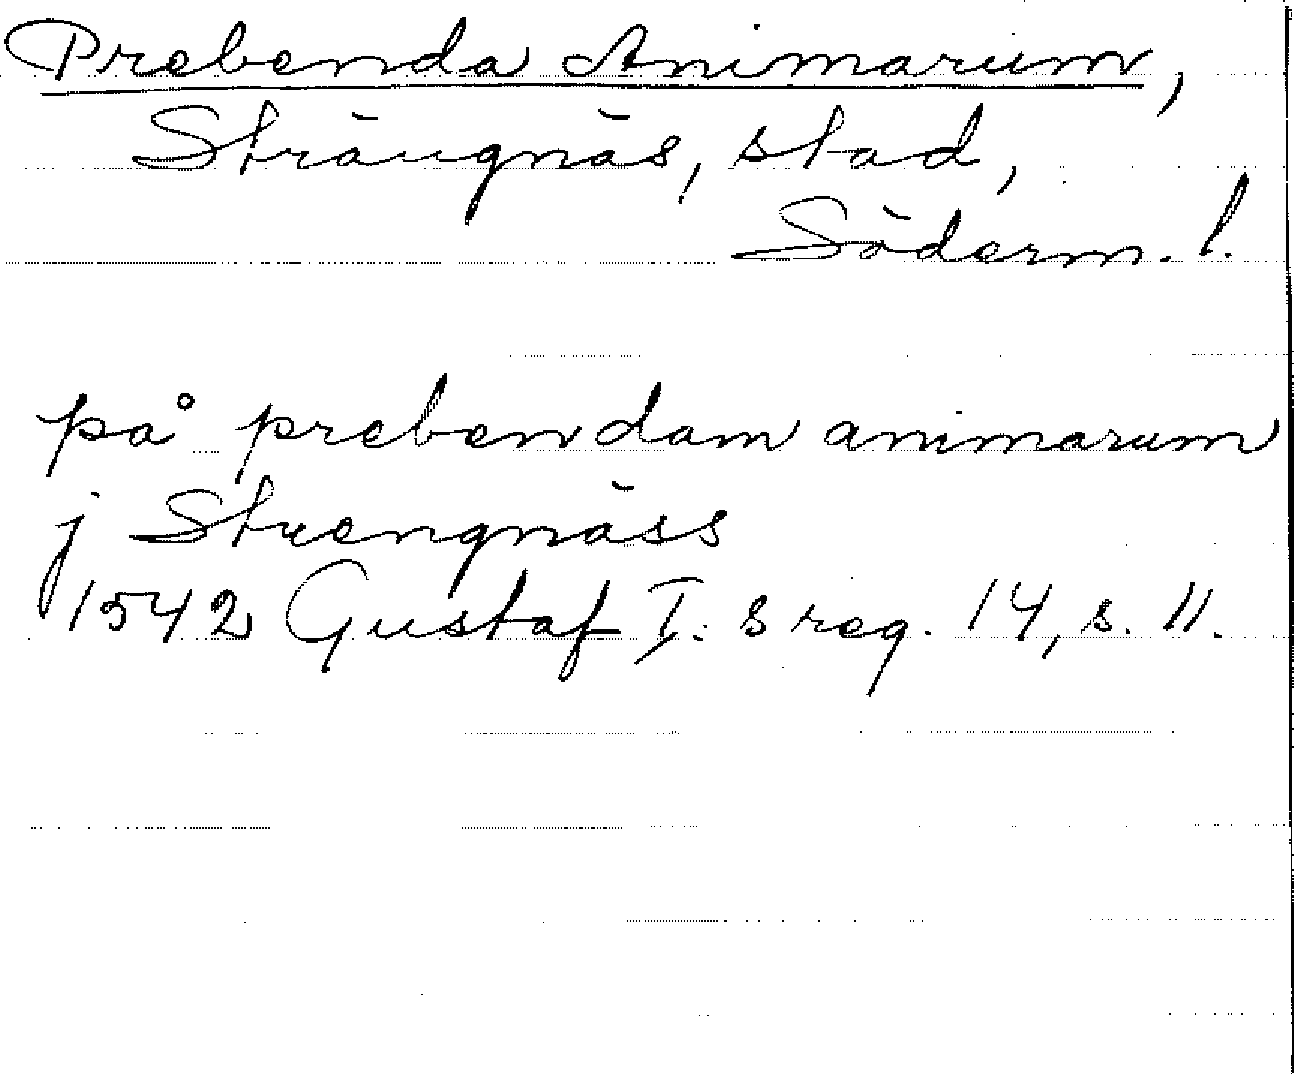 Prebenda Animarum,
Strängnäs, stad,
Söderm. l.
på prebendam animarum
j Strengnäss
1542 Gustaf I:s reg. 14, s. 11.